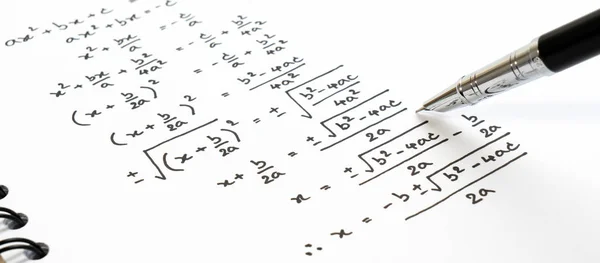 ax² + bx + c =
ax² + bx = -c
x² + bx/a = -c/a
x² + bx/a + b²/4a² = -c/a + b²/4a²
(x + b/2a)² = -c/a + b²/4a²
(x + b/2a)² = b² - 4ac/4a²
±√(x + b/2a)² = ±√b² - 4ac/4a²
x + b/2a = ±√b² - 4ac/2a
x = ±√b² - 4ac/2a - b/2a
∴ x = -b ± √b² - 4ac/2a